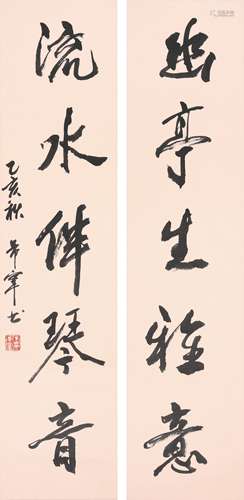 幽亭生雅意
流水伴琴音
乙亥秋 希宁书